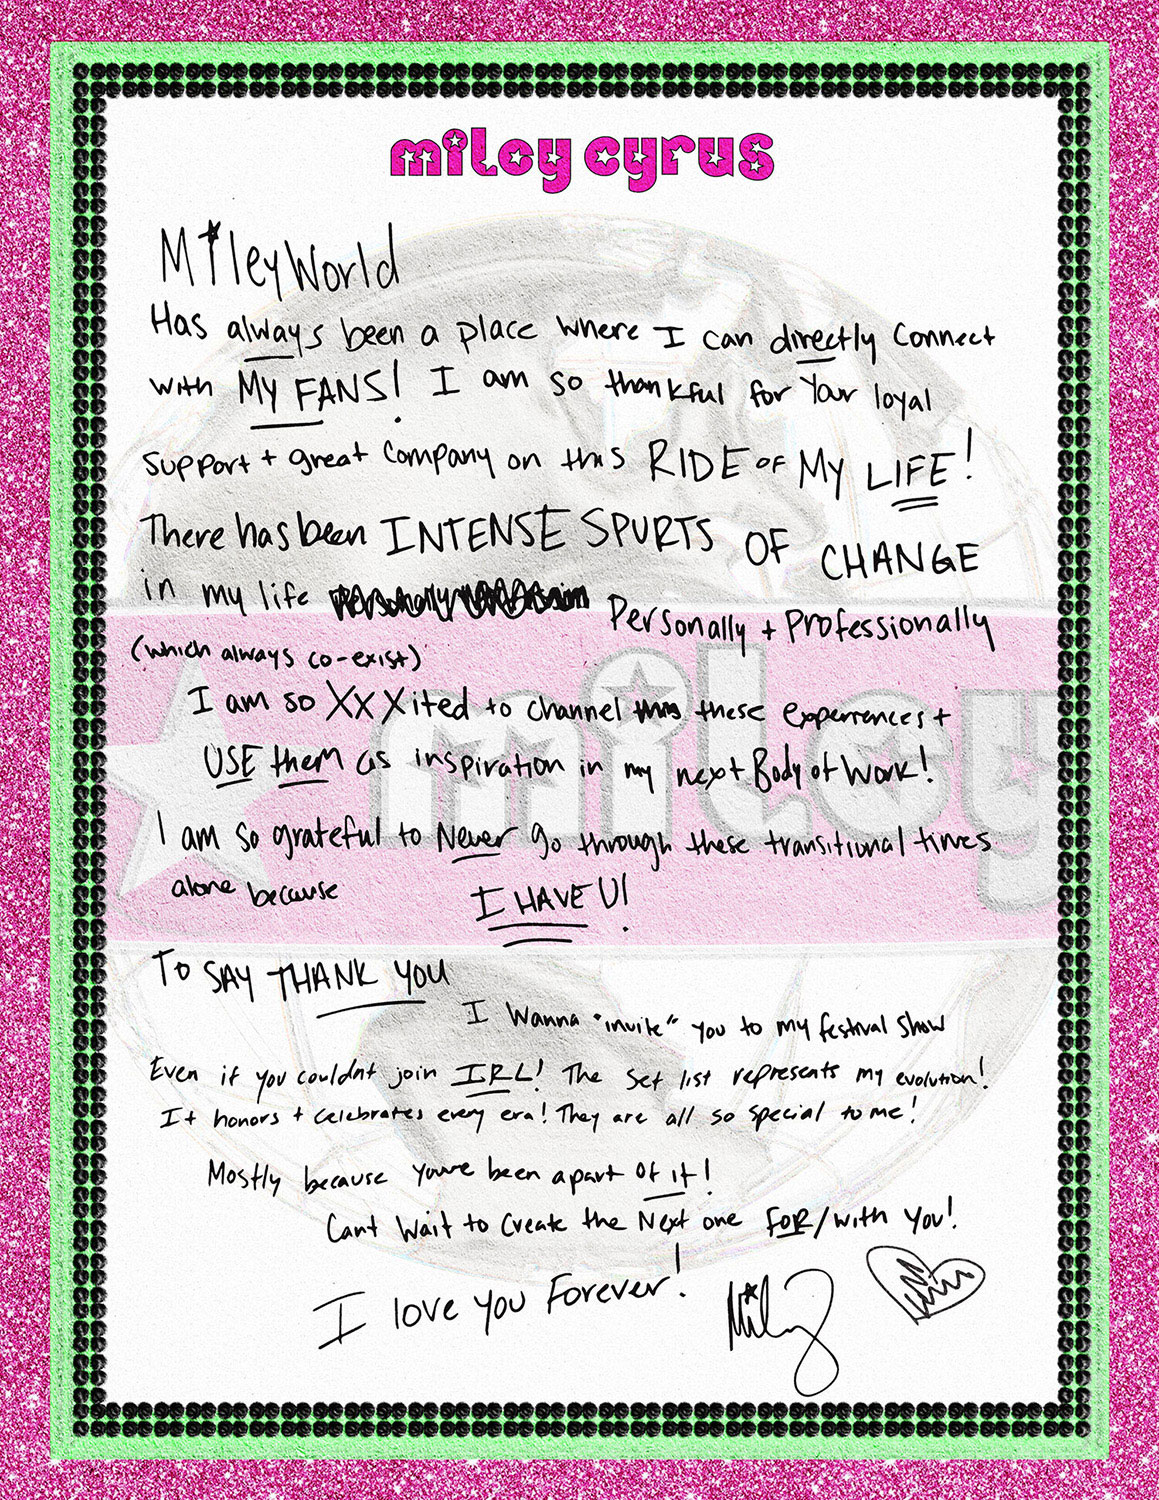 miley cyrus
MileyWorld
Has always been a place where I can directly connect
with MY FANS! I am so thankful for your loyal
support + great company on this RIDE OF MY LIFE!
There has been INTENSE SPURTS OF CHANGE
in my life Personally + Professionally
(which always co-exist)
I am so XxXited to channel these experiences +
USE them as inspiration in my next Body of Work!
I am so grateful to Never go through these transitional times
alone because I HAVE U!
To SAY THANK YOU
I Wanna "invite" you to my festival show
Even if you couldnt join IRL! The set list represents my evolution!
It honors + celebrates every era! They are all so special to me!
Mostly because youve been apart of it!
Cant Wait to Create the Next one FOR/with you!
I love you Forever! Miley
miley